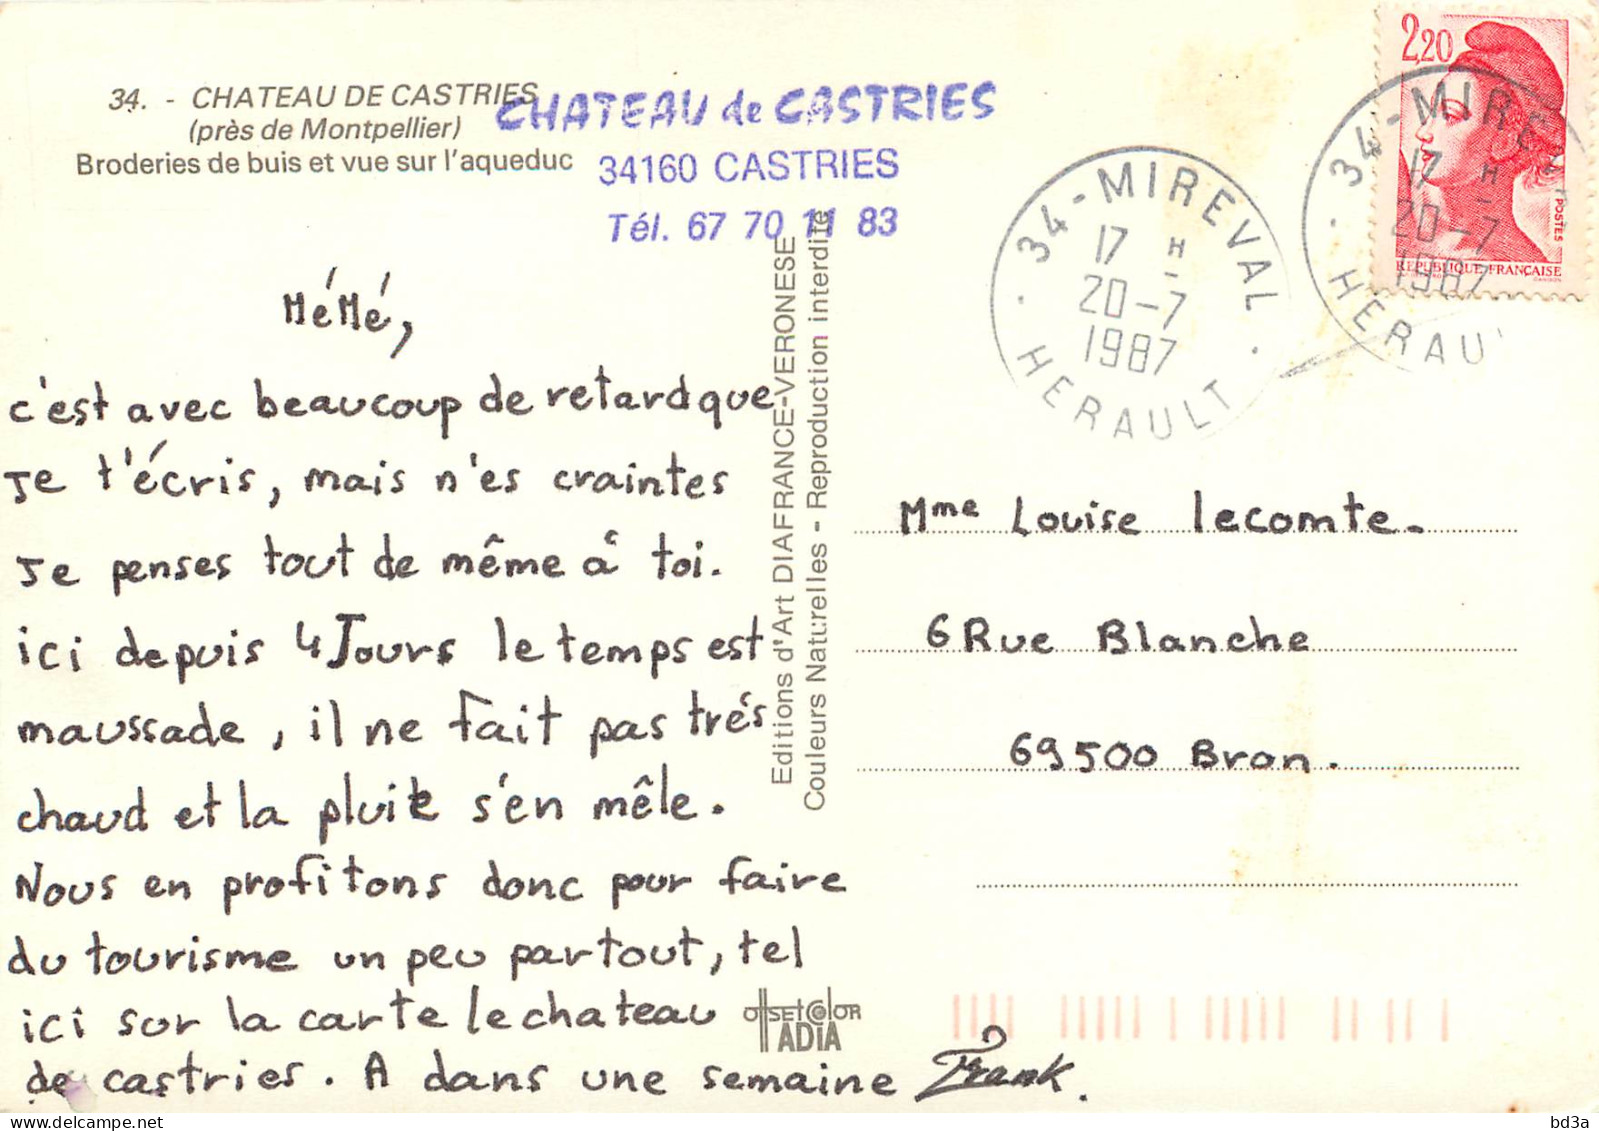 34. - CHATEAU DE CASTRIES
(près de Montpellier)
Broderies de buis et vue sur l'aqueduc
CHATEAU de CASTRIES
34160 CASTRIES
Tél. 67 70 11 83
MéMé,
c'est avec beaucoup de retard que
Je t'écris, mais n'es craintes
Je penses tout de même à toi.
ici depuis 4 Jours le temps est
maussade, il ne fait pas trés
chaud et la pluie s'en mêle.
Nous en profitons donc pour faire
du tourisme un peu partout, tel
ici sur la carte le chateau
de castries. A dans une semaine Frank.
Editions d'Art DIAFRANCE-VERONESE
Couleurs Naturelles - Reproduction interdite
OffSET COLOR
ADIA
34-MIREVAL
17 H
20-7
1987
HERAULT
34-MIRE
17 H
20-7
1987
HERAU
2,20
POSTES
REPUBLIQUE FRANÇAISE
Mme Louise Lecomte.
6 Rue Blanche
69500 Bron.
bd3a